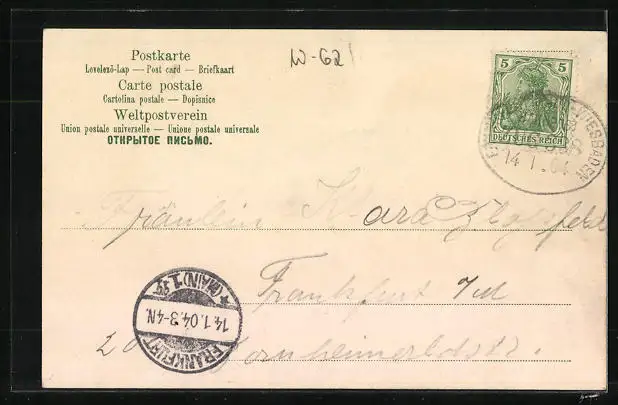 Postkarte
Levelező-Lap — Post card — Briefkaart
Carte postale
Cartolina postale — Dopisnice
Weltpostverein
Union postale universelle — Unione postale universale
ОТКРЫТОЕ ПИСЬМО.
W-62
5 5
DEUTSCHES REICH
WIESBADEN
14 1. 04
Fräulein Klara
Frankfurt a/M
FRANKFURT (MAIN) 1
14.1.04.3-4N.
20